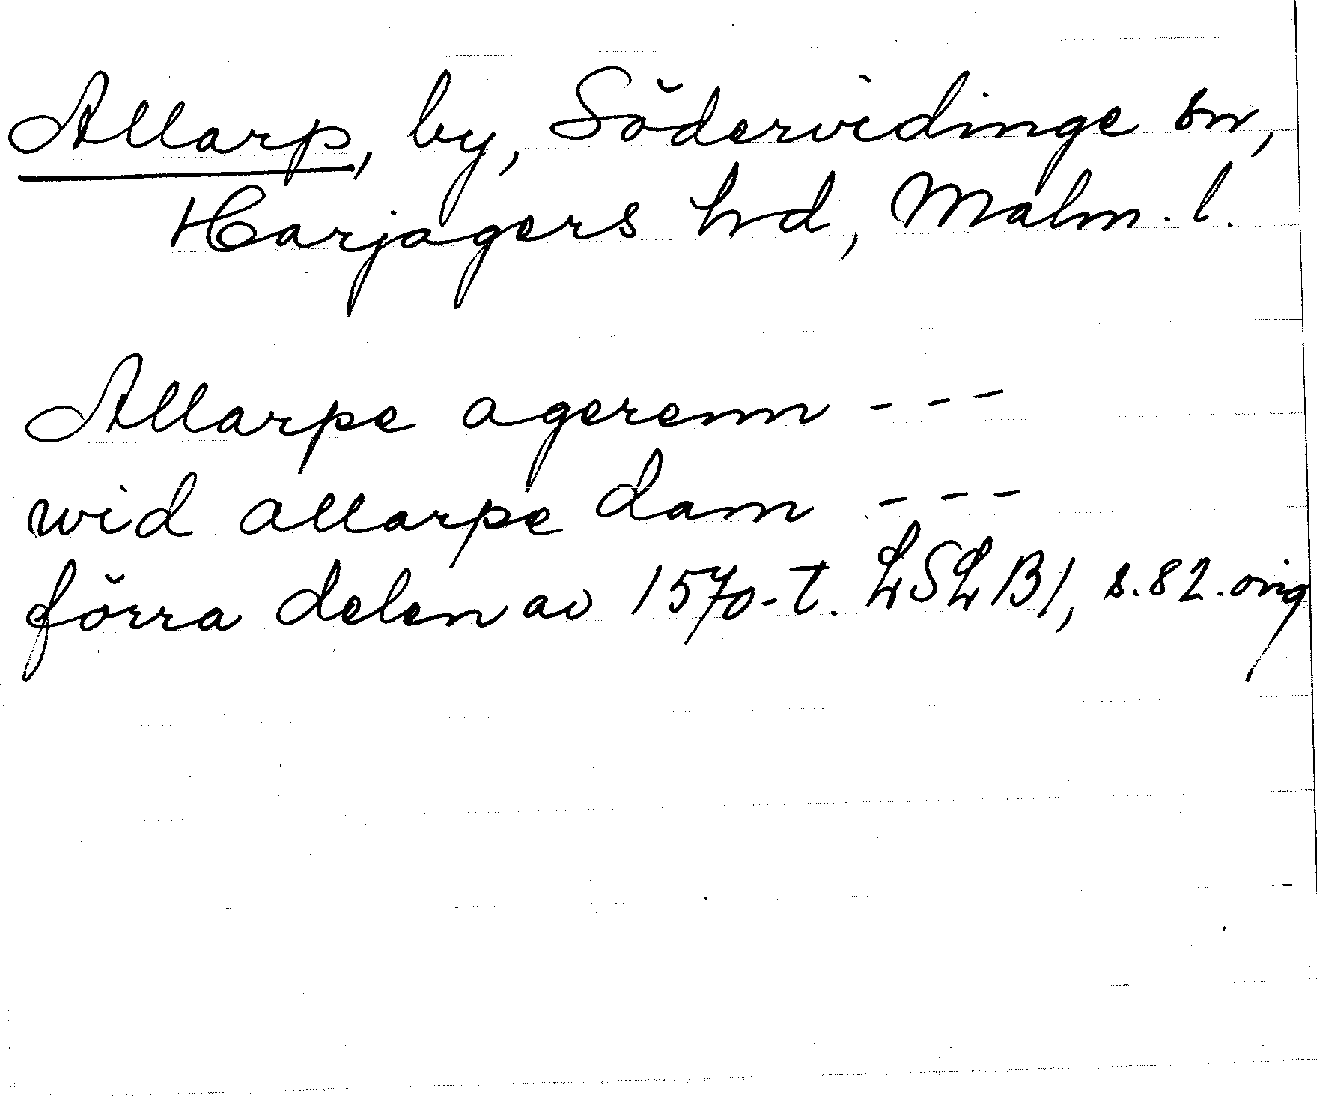 Allarp, by, Södervidinge sn,
Harjagers hd, Malm. l.
Allarpe agerenn ---
wid allarpe dam ---
förra delen av 1570-t. LSLB1, s. 82. orig